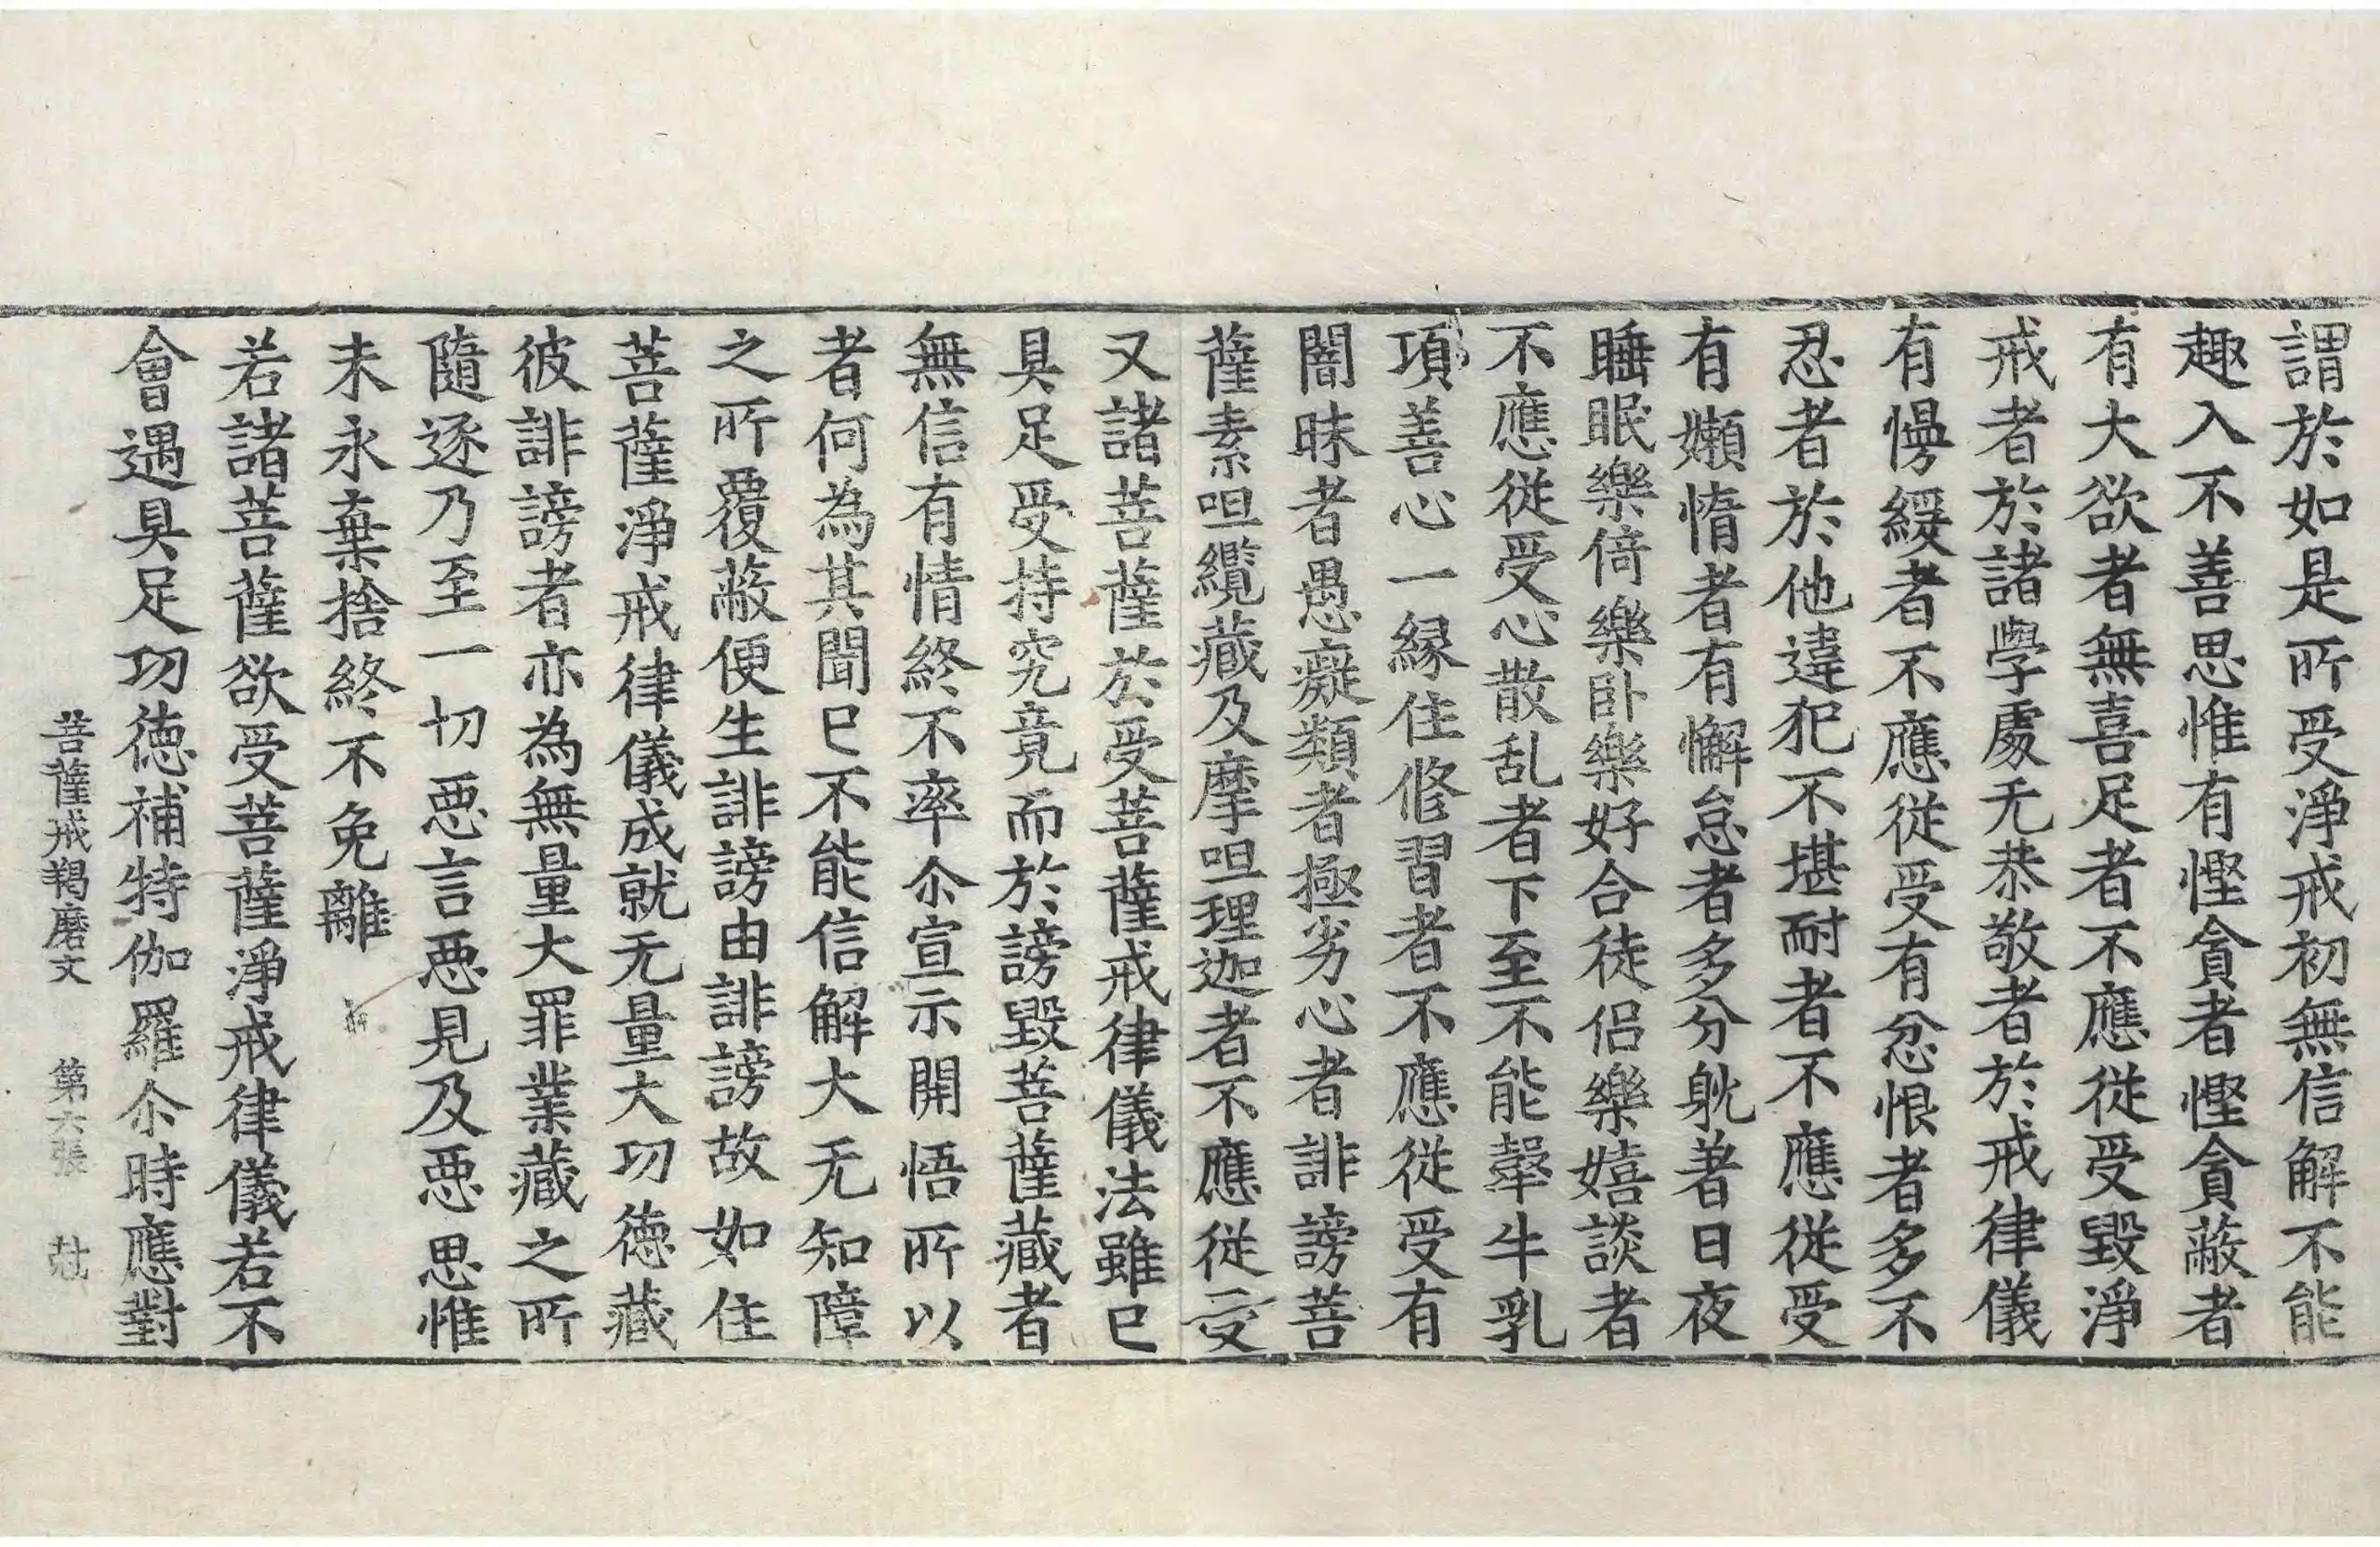 謂於如是所受淨戒初無信解不能
趣入不善思惟有慳貪者慳貪蔽者
有大欲者無喜足者不應從受毀淨
戒者於諸學處无恭敬者於戒律儀
有慢緩者不應從受有忿恨者多不
忍者於他違犯不堪耐者不應從受
有嬾惰者有懈怠者多分躭著日夜
睡眠樂倚樂卧樂好合徒侶樂嬉談者
不應從受心散乱者下至不能鞏牛乳
項善心一緣住修習者不應從受有
闇昧者愚癡類者極劣心者誹謗菩
薩素呾纜藏及摩呾理迦者不應從受
又諸菩薩於受菩薩戒律儀法雖已
具足受持究竟而於謗毀菩薩藏者
無信有情終不率尒宣示開悟所以
者何為其聞已不能信解大无知障
之所覆蔽便生誹謗由誹謗故如住
菩薩淨戒律儀成就无量大功德藏
彼誹謗者亦為無量大罪業藏之所
隨逐乃至一切惡言惡見及惡思惟
未永棄捨終不免離
若諸菩薩欲受菩薩淨戒律儀若不
會遇具足功德補特伽羅尒時應對
菩薩戒羯磨文 第六張